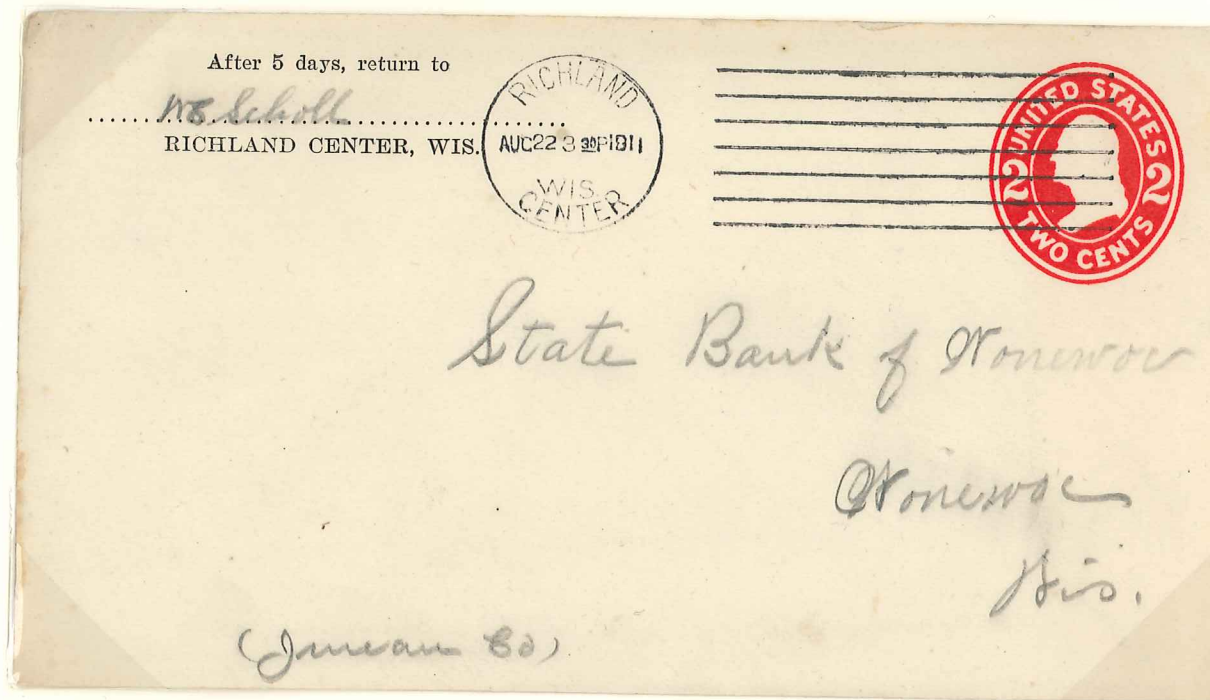 After 5 days, return to
WE Scholl
RICHLAND CENTER, WIS.
RICHLAND
AUG 22 3 30P 1911
WIS.
CENTER
UNITED STATES
2 2
TWO CENTS
State Bank of Wonewoc
Wonewoc
Wis.
(Juneau Co)